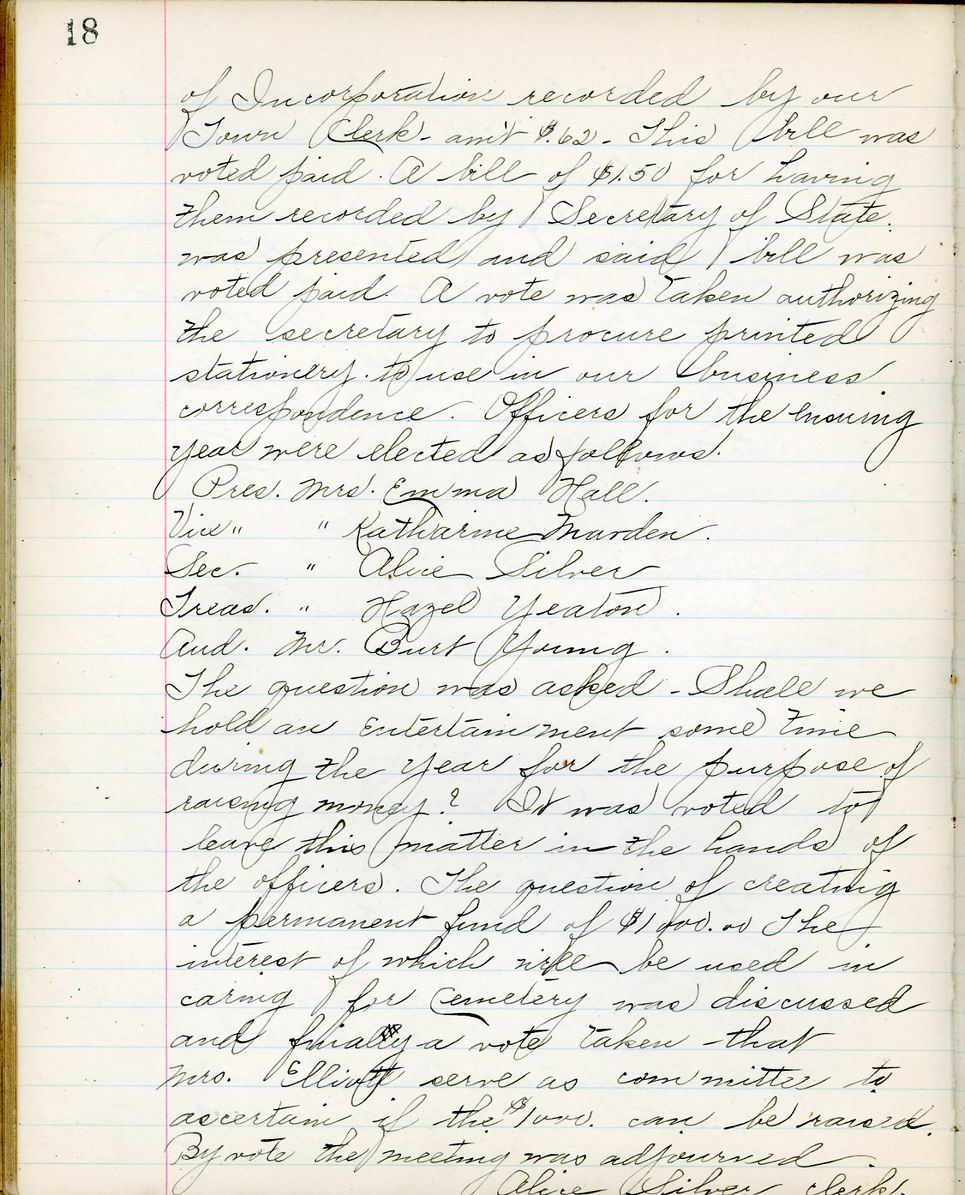 18
of Incorporation recorded by our
Town Clerk - am't $.62 - This bill was
voted paid. A bill of $1.50 for having
them recorded by Secretary of State.
was presented and said bill was
voted paid. A vote was taken authorizing
the secretary to procure printed
stationery. to use in our business
correspondence. Officers for the ensuing
year were elected as follows.
Pres. Mrs. Emma Hall.
Vice " " Katharine Marden.
Sec. " Alice Silver
Treas. " Hazel Yeaton.
Aud. Mr. Burt Young.
The question was asked - Shall we
hold an Entertainment some time
during the year for the purpose of
raising money? It was voted to
leave this matter in the hands of
the officers. The question of creating
a permanent fund of $1000.00 The
interest of which will be used in
caring for Cemetery was discussed
and finally a vote taken - that
Mrs. Elliott serve as committee to
ascertain if the $1000. can be raised.
By vote the meeting was adjourned.
Alice Silver clerk.